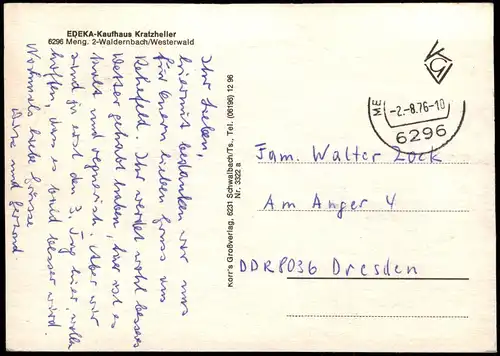 EDEKA-Kaufhaus Kratzheller
6296 Meng. 2-Waldernbach/Westerwald
Ihr Lieben,
hiermit bedanken wir uns
für Euern lieben Gruß aus
Rehefeld. Ihr werdet wohl besseres
Wetter gehabt haben, hier ist es
kalt und regnerisch. Aber wir
sind ja erst den 3. Tag hier, wollen
hoffen, das es bald besser wird.
Nochmals liebe Grüsse
und Gerhard.
Korr's Großverlag, 6231 Schwalbach/Ts., Tel. (06196) 12 96
Nr. 3322 a
KGV
ME
-2.-8.76-10
6296
Fam. Walter Zock
Am Anger 4
DDR 8036 Dresden